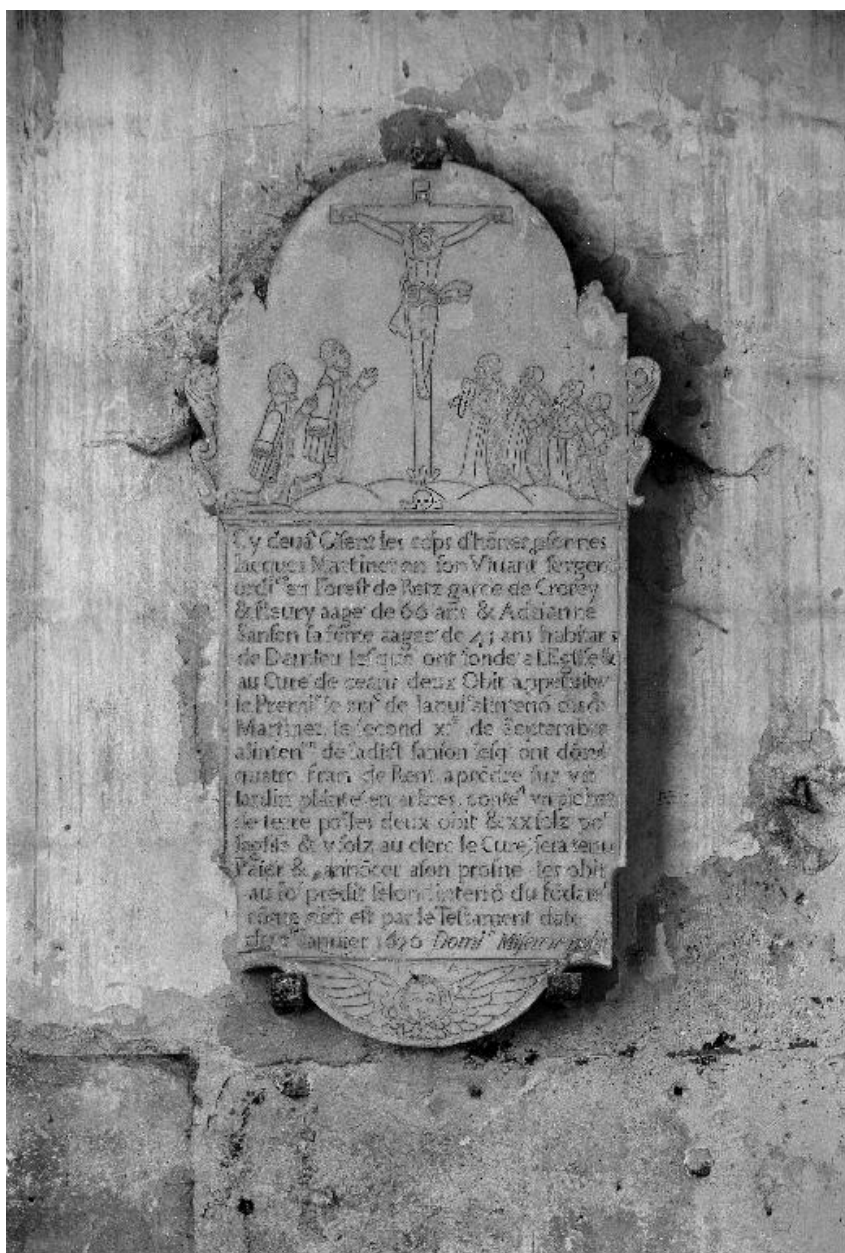 Cy devāt Gisent les corps d'hōnes psonnes
Jacques Martinet en son Vivant sergent
ordi^re en Forest de Retz garde de Croyey
& fleury aage de 66 ans & Adrianne
Sanson sa feme aagee de 43 ans habitans
de Damleu lesquē ont fonde a LEglise &
au Cure de ceans deux Obit appetuity
le Premi^r le de Janvi^r alintenō dudi^t
Martinet le second xi^e de Septembre
alinten^on de ladict sanson lesq ont dōne
quatre fran de Rent a prēdre sur vn
Jardin plante en arbres conte^t vn pichet
de terre po^r les deux obit & xx solz po^r
leglise & v solz au clerc le Cure sera tenu
Paier & annōcer a son prosne les obit
au jo^r predit selon lintetiō du fōdate^r
cōme est par le Testament date
du Janvier 1636 Domi^e Miserere nobis